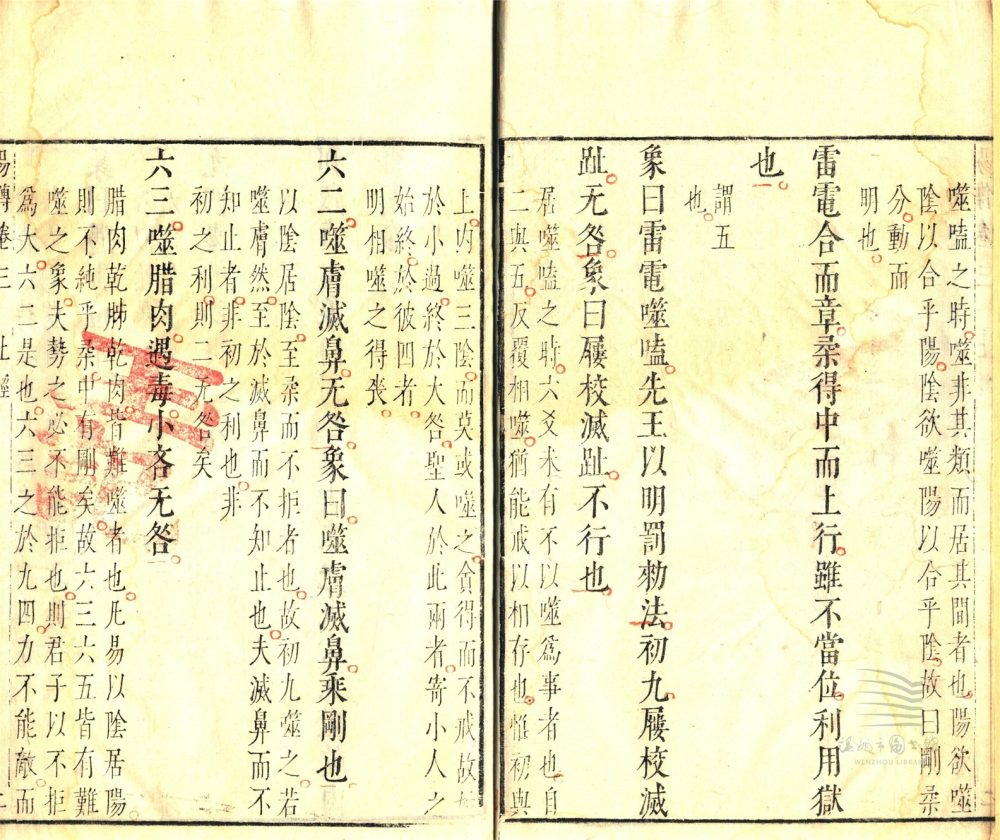 噬嗑之時噬非其類而居其間者也陽欲噬
陰以合乎陽陰欲噬陽以合乎陰故曰剛柔
分動而
明也
雷電合而章柔得中而上行雖不當位利用獄
也
謂五
也
象曰雷電噬嗑先王以明罰勑法初九屨校滅
趾无咎象曰屨校滅趾不行也
居噬嗑之時六爻未有不以噬爲事者也自
二與五反覆相噬猶能戒以相存也惟初與
上內噬三陰而莫或噬之貪得而不戒故始
於小過終於大咎聖人於此兩者寄小人之
始終於彼四者
明相噬之得喪
六二噬膚滅鼻无咎象曰噬膚滅鼻乘剛也
以陰居陰至柔而不拒者也故初九噬之若
噬膚然至於滅鼻而不知止也夫滅鼻而不
知止者非初之利也非
初之利則二无咎矣
六三噬腊肉遇毒小吝无咎
腊肉乾胏乾肉皆難噬者也凡易以陰居陽
則不純乎柔中有剛矣故六三六五皆有難
噬之象夫勢之必不能拒也則君子以不拒
爲大六二是也六三之於九四力不能敵而
易傳卷三 上經 二
溫州市圖書館
WENZHOU LIBRARY